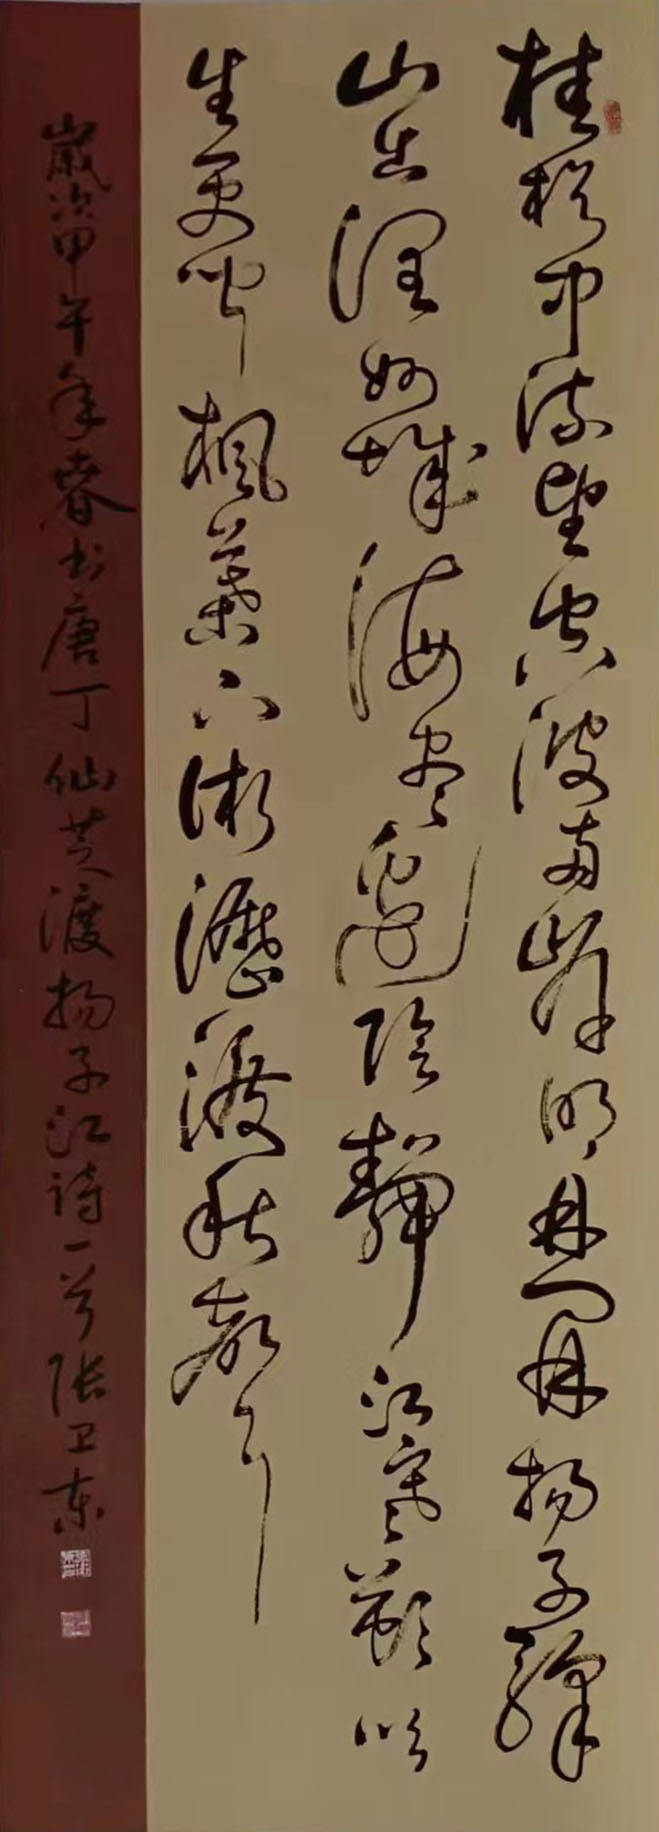 桂楫中流望空波两岸明林開扬子驿
山出潤州城海尽邊陰靜江寒朔吹
生更闻楓葉下淅瀝渡秋声
歲次甲午年春书唐丁仙芝渡扬子江詩一首张卫东